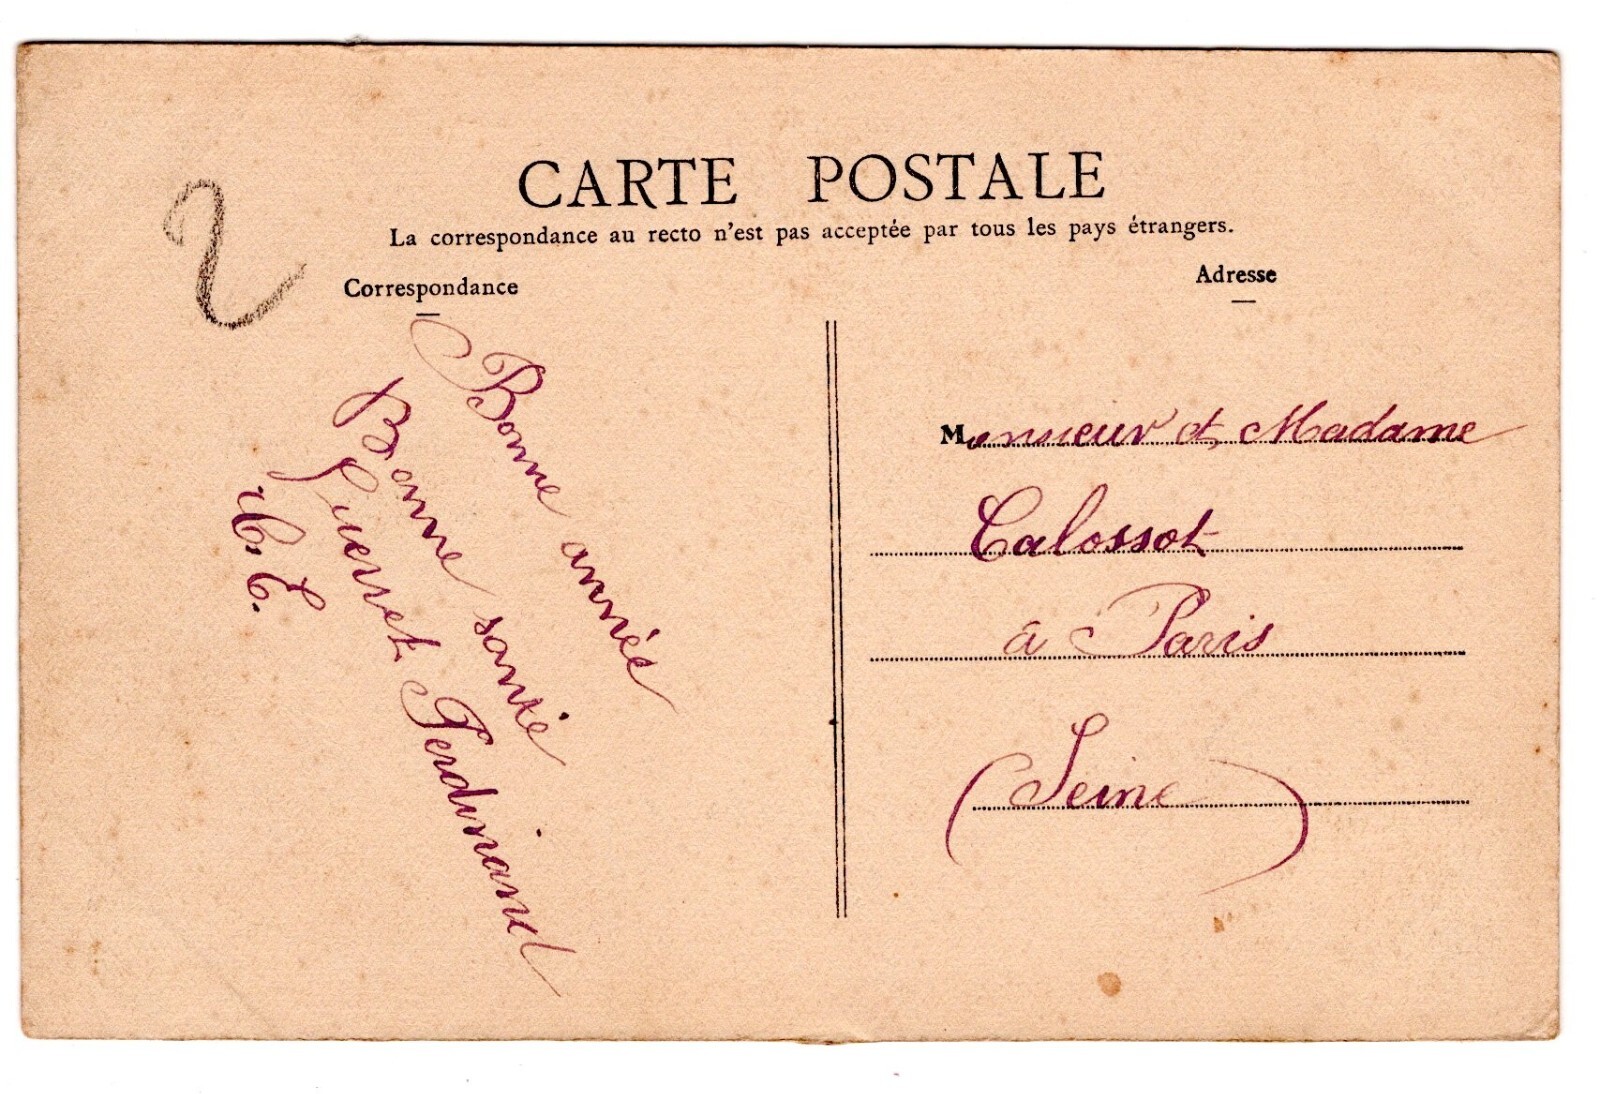 CARTE POSTALE
La correspondance au recto n'est pas acceptée par tous les pays étrangers.
2
Correspondance
Bonne année
Bonne santé
Ferdinand
Adresse
Monsieur et Madame
Calossot
à Paris
(Seine)